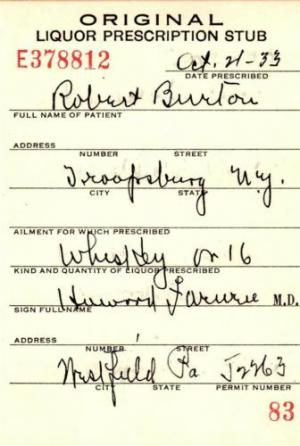 ORIGINAL
LIQUOR PRESCRIPTION STUB
E378812 Oct. 21-33
DATE PRESCRIBED
Robert Burton
FULL NAME OF PATIENT
ADDRESS
NUMBER STREET
Troopsburg N.Y.
CITY STATE
AILMENT FOR WHICH PRESCRIBED
Whiskey oz 16
KIND AND QUANTITY OF LIQUOR PRESCRIBED
Howard M.D.
SIGN FULL NAME
ADDRESS
NUMBER STREET
Westfield Pa J2263
CITY STATE PERMIT NUMBER
83